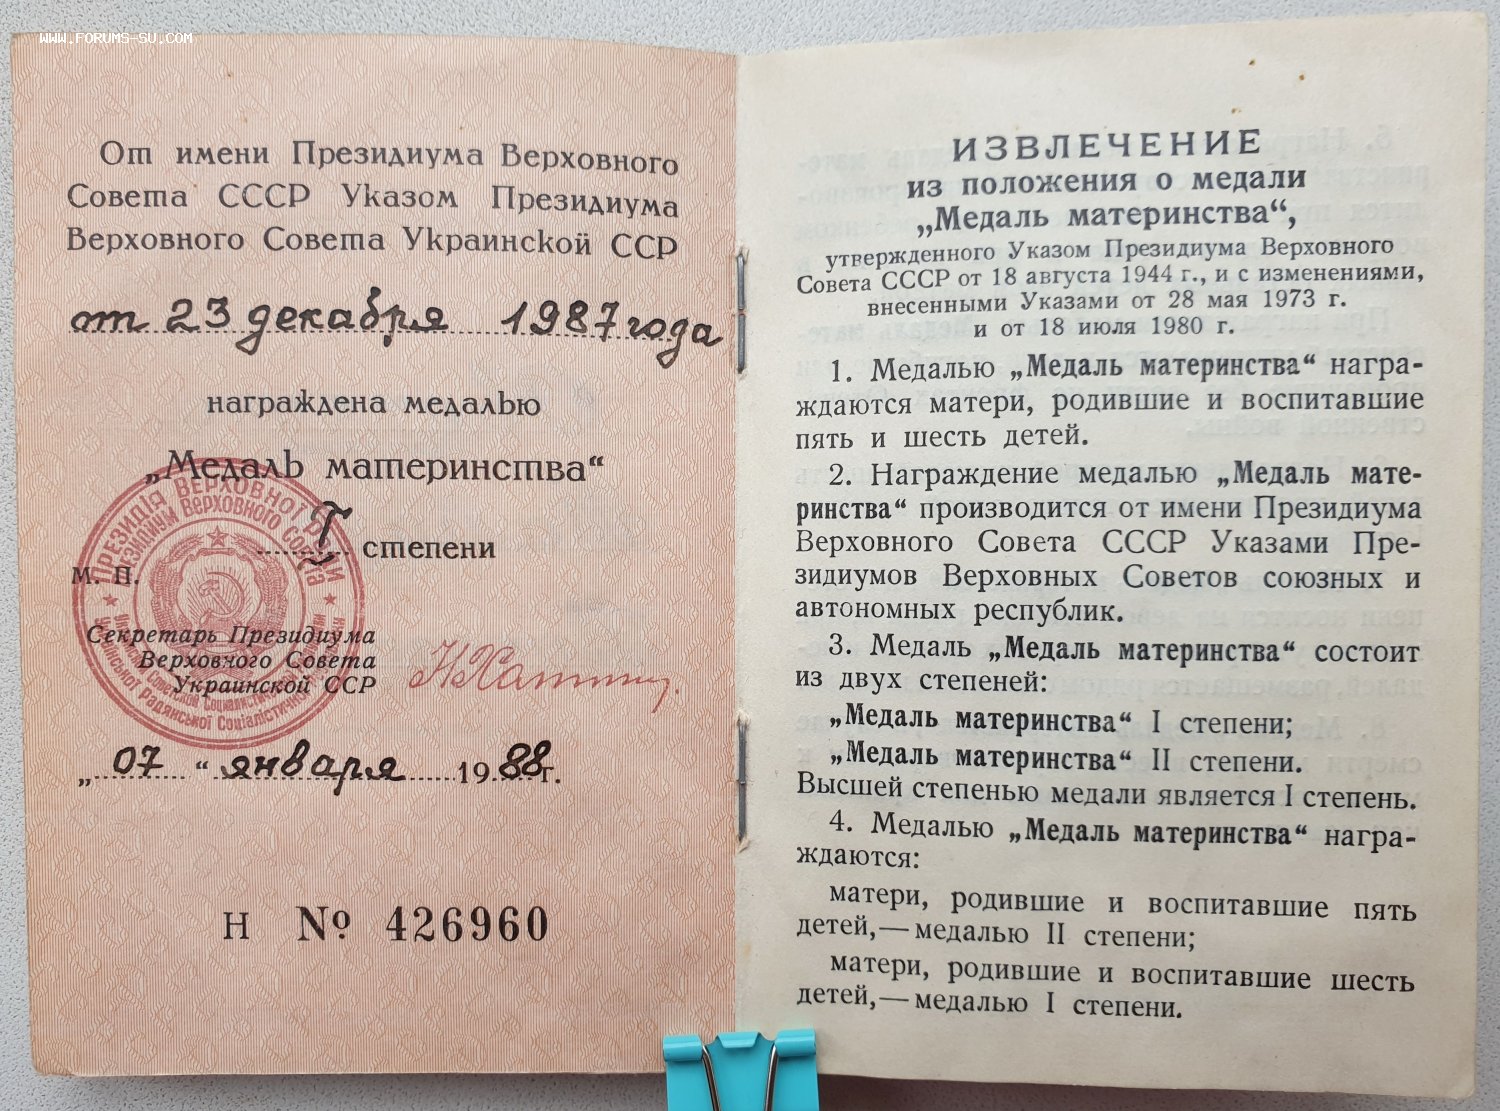 WWW.FORUMS-SU.COM
От имени Президиума Верховного
Совета СССР Указом Президиума
Верховного Совета Украинской ССР
от 23 декабря 1987 года
награждена медалью
„Медаль материнства“
I степени
М. П.
Секретарь Президиума
Верховного Совета
Украинской ССР
„07“ января 1988г.
Н № 426960
ПРЕЗИДІЯ ВЕРХОВНОЇ РАДИ
Української Радянської Соціалістичної
Президиум Верховного Совета
ИЗВЛЕЧЕНИЕ
из положения о медали
„Медаль материнства“,
утвержденного Указом Президиума Верховного
Совета СССР от 18 августа 1944 г., и с изменениями,
внесенными Указами от 28 мая 1973 г.
и от 18 июля 1980 г.
1. Медалью „Медаль материнства“ награ-
ждаются матери, родившие и воспитавшие
пять и шесть детей.
2. Награждение медалью „Медаль мате-
ринства“ производится от имени Президиума
Верховного Совета СССР Указами Пре-
зидиумов Верховных Советов союзных и
автономных республик.
3. Медаль „Медаль материнства“ состоит
из двух степеней:
„Медаль материнства“ I степени;
„Медаль материнства“ II степени.
Высшей степенью медали является I степень.
4. Медалью „Медаль материнства“ награ-
ждаются:
матери, родившие и воспитавшие пять
детей,—медалью II степени;
матери, родившие и воспитавшие шесть
детей,—медалью I степени.